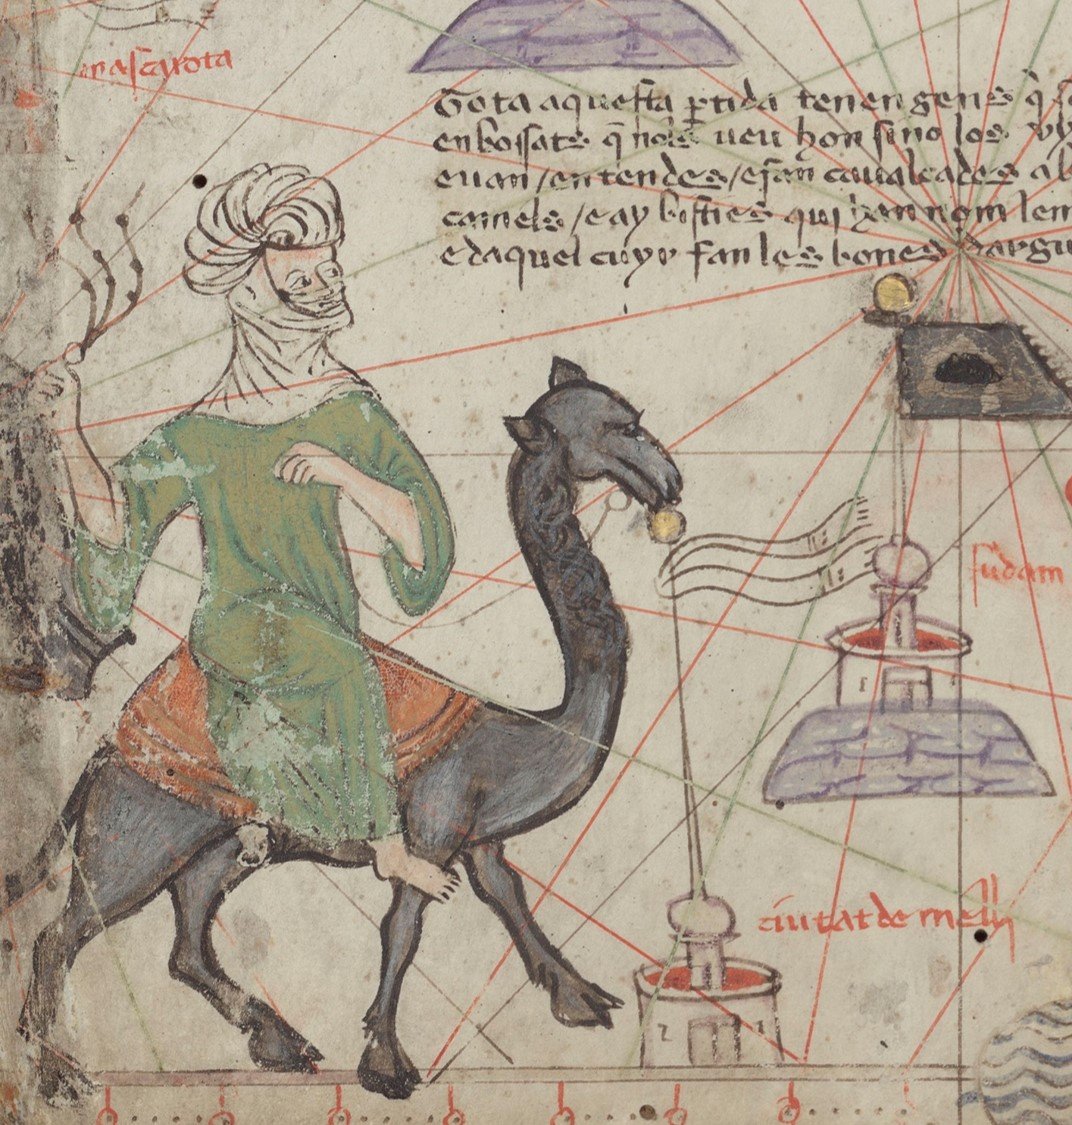 ascarota
Tota aquesta ptida tenen gens q̃
enboſſats q̃ nols ueu hon sino los
euan / en tendes / e fan caualcades ab
camels / e ay bisties qui han nom lem
e daquel cuyr fan les bones darg
sudam
ciutat de melly